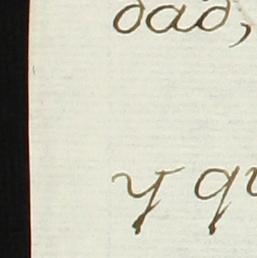 dad,
y qu